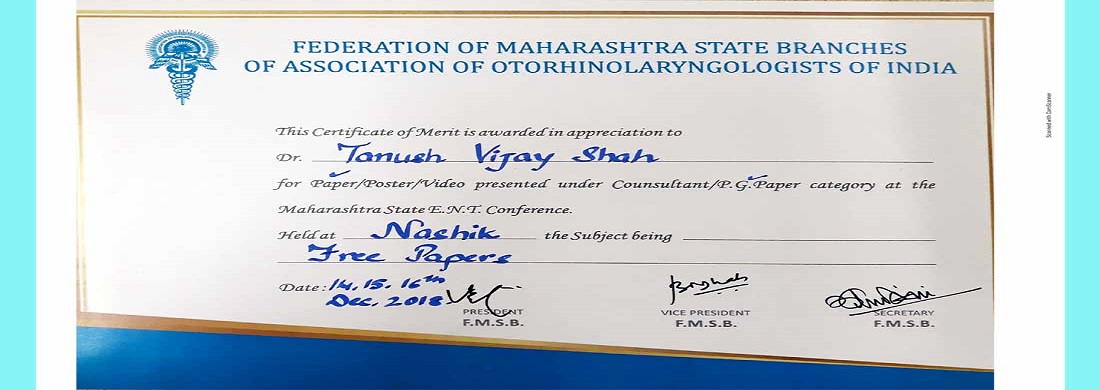 FEDERATION OF MAHARASHTRA STATE BRANCHES
OF ASSOCIATION OF OTORHINOLARYNGOLOGISTS OF INDIA
This Certificate of Merit is awarded in appreciation to
Dr. Tanush Vijay Shah
for Paper/Poster/Video presented under Counsultant/P.G.Paper category at the
Maharashtra State E.N.T. Conference.
Held at Nashik the Subject being
Free Papers
Date: 14, 15, 16th
Dec. 2018
PRESIDENT
F.M.S.B.
VICE PRESIDENT
F.M.S.B.
SECRETARY
F.M.S.B.
Scanned with CamScanner